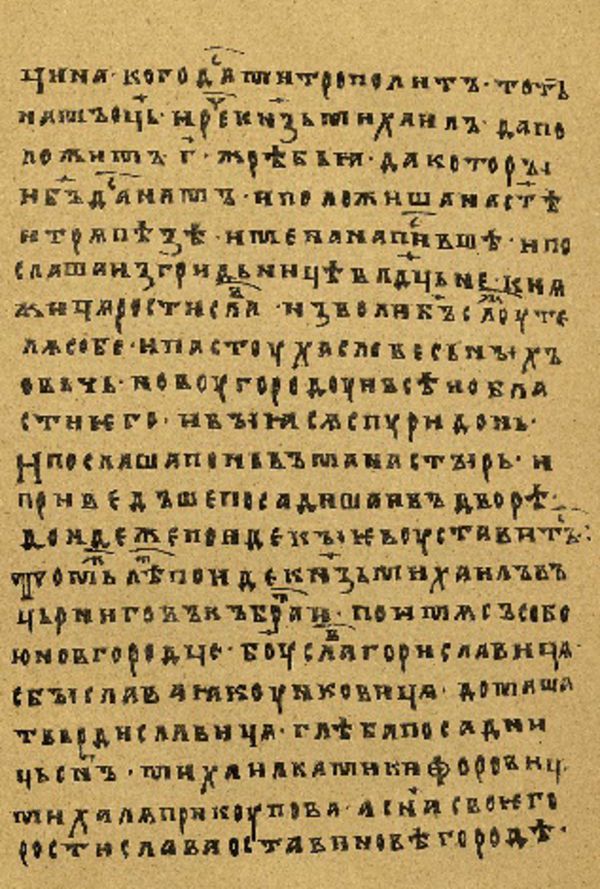 чина· кого дⷭ҇а митрополитъ· тотъ
намъ оц҃ь· и реⷱ҇ кнѧ҃зь михаилъ· дапо
ложимъ г҃· жрѣбьꙗ· да которꙑ
и б҃ъ дⷭ҇а намъ· и положиша на ст҃ѣ
и трѧпѣзѣ· имена напⷭ҇въшѣ· и по
слаша из гридьницѣ влⷣцьне· кнѧ
жицѧ ростислаⷡ· изволи б҃ъ слоуⷤте
лѧ собе· и пастоуха словесьнꙑхъ
овьчь· новоугородоу и всѣи обла
сти ѥго· и вꙑꙗсѧ спуридонь·
И послаша по нь въ манастꙑрь· и
приведъше посадиша и въ дворѣ·
дондеже поиде кꙑѥвоу ставитъⷭ:
Томь ⷤ лѣⷮ поиде кнѧ҃зь михаилъ въ
цьрниговъ къ браⷮи· поимѧ съ собо
ю новгородце· боуслаⷡ гориславицѧ·
сбꙑслава ꙗкоуновицѧ· домаша
твьрдиславицѧ· глѣба посадни
цьсн҃ъ· михаилка микифоровиц·
михалѧ прикоупова· а сн҃а своѥго
ростислава остави новѣгородѣ·